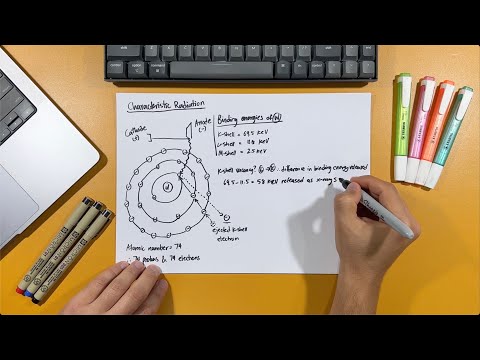 Characteristic Radiation
Cathode
(+)
Anode
(-)
Binding energies of (W)
K-shell = 69.5 keV
L-shell = 11.5
M-shell = 2.5 keV
K-shell vacancy? L → K. difference in binding energy released
69.5 - 11.5 = 58 keV released as x-rays
W
ejected K-shell
electron
Atomic number = 74
∴ 74 protons & 74 electrons